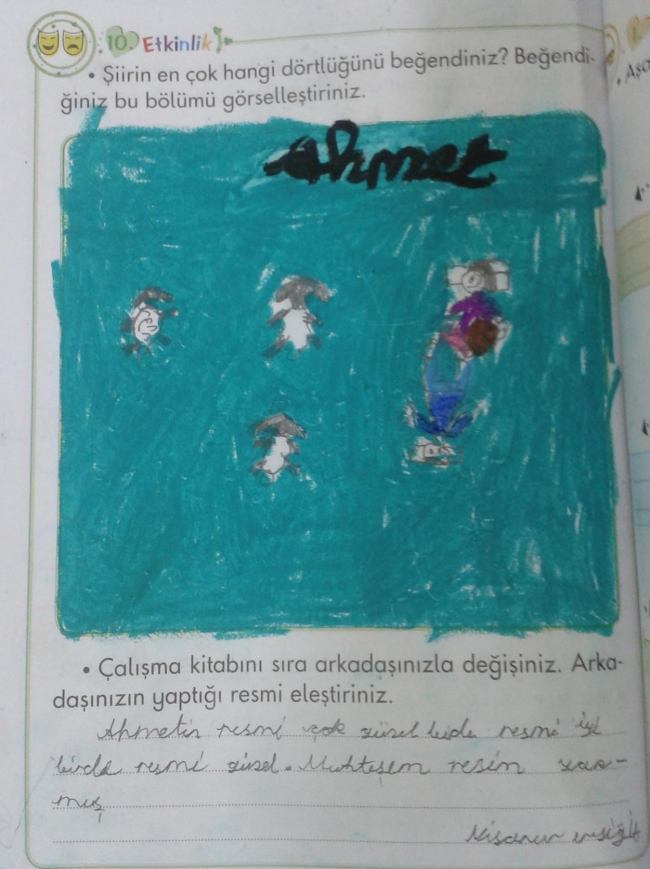 10. Etkinlik
• Şiirin en çok hangi dörtlüğünü beğendiniz? Beğendi-
ğiniz bu bölümü görselleştiriniz.
Ahmet
• Çalışma kitabını sıra arkadaşınızla değişiniz. Arka-
daşınızın yaptığı resmi eleştiriniz.
Ahmetin resmi çok güzel birde resmi iyi
birde resmi güzel. Muhteşem resim yap-
mış